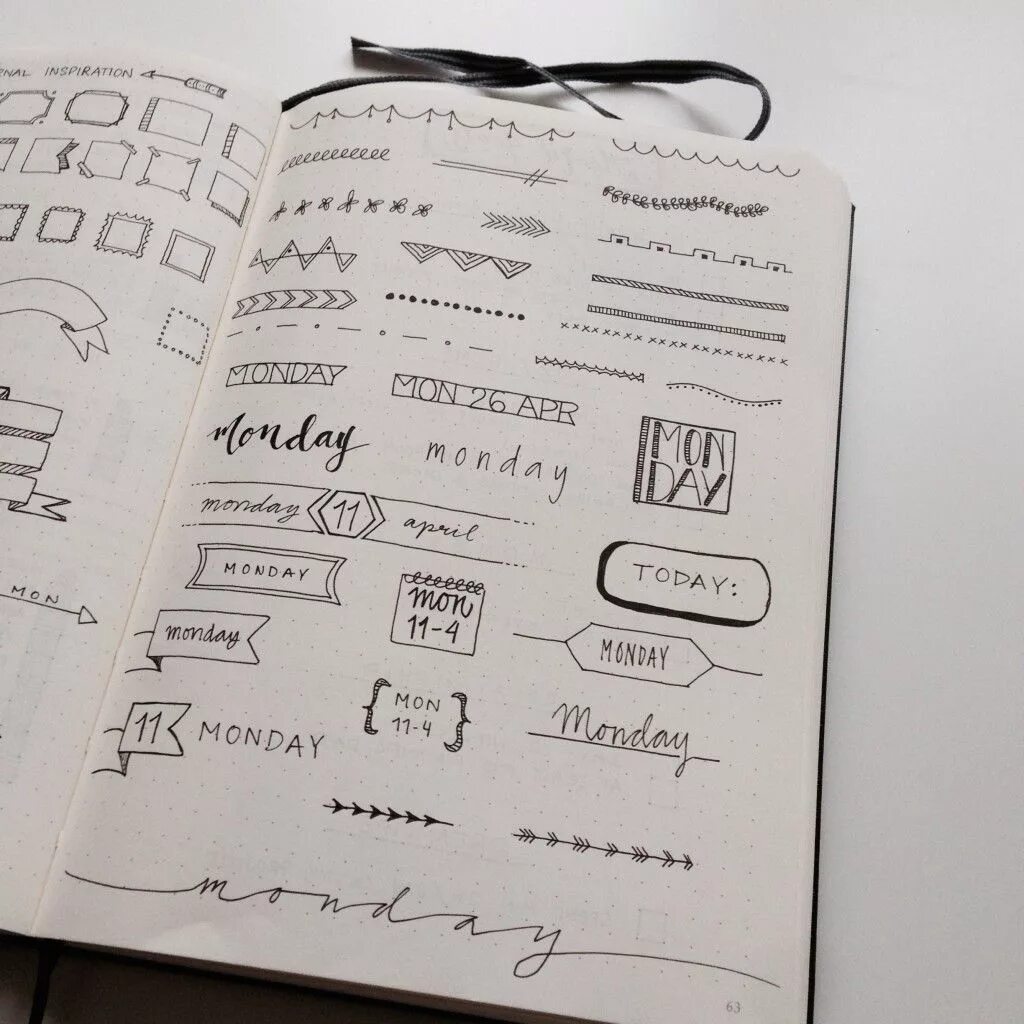 INSPIRATION
MON
MONDAY
MON 26 APR
monday
monday
MON
DAY
monday 11 april
MONDAY
mon
11-4
TODAY:
monday
MONDAY
MON
11-4
11 MONDAY
Monday
monday
63